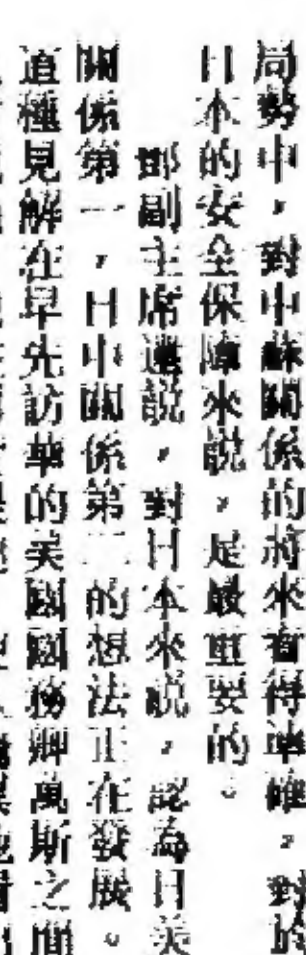 局勢中，對中蘇關係的將來看得準確，對的
日本的安全保障來說，是最重要的。
鄧副主席還說，對日本來說，認為日美
關係第一，日中關係第二的想法正在發展。
這種見解在早先訪華的美國國務卿萬斯之間